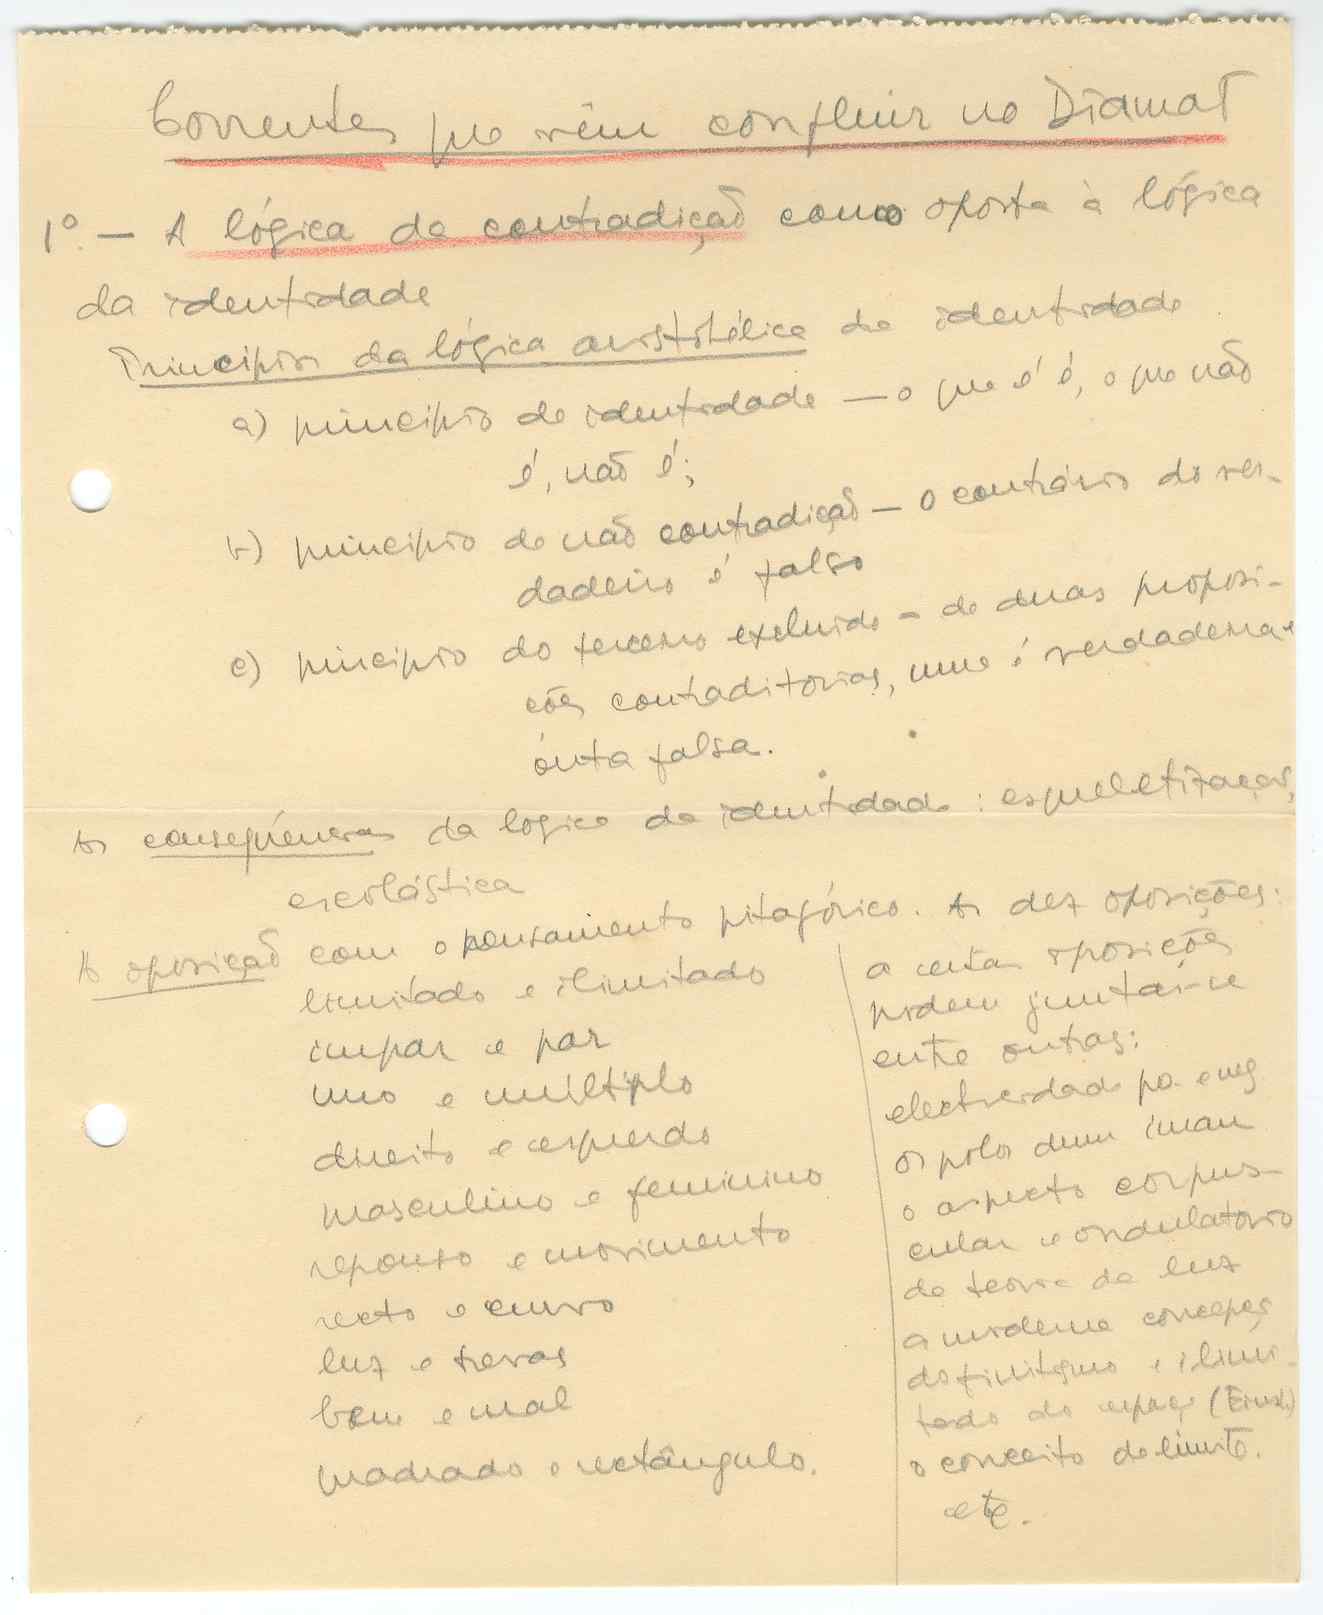 Correntes que vêm confluir no Diamat
1º. — A lógica da contradição como oposta à lógica
da identidade
Princípios da lógica aristotélica da identidade
a) princípio de identidade — o que é é, o que não
é, não é;
b) princípio de não contradição — o contrário do ver-
dadeiro é falso
c) princípio do terceiro excluído — de duas proposi-
ções contraditorias, uma é verdadeira e
outra falsa.
As consequências da lógica da identidade: esqueletização,
escolástica
A oposição com o pensamento pitagórico. As dez oposições:
limitado e ilimitado
impar e par
uno e múltiplo
direito e esquerdo
masculino e feminino
repouso e movimento
recto e curvo
luz e trevas
bem e mal
quadrado e rectângulo.
a estas oposições
podem juntar-se
entre outras:
electricidade pos. e neg
os polos dum iman
o aspecto corpus-
cular e ondulatorio
da teoria da luz
a moderna concepção
do finitismo e ilimi-
tado do espaço (Einst.)
o conceito de limite.
etc.